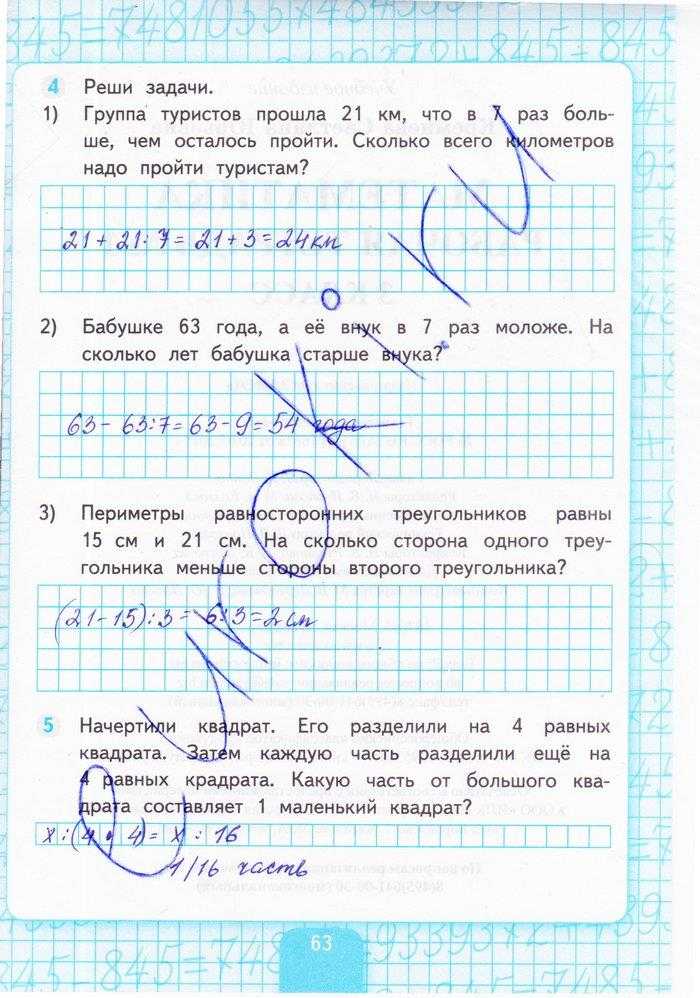 4 Реши задачи.
1) Группа туристов прошла 21 км, что в 7 раз боль-
ше, чем осталось пройти. Сколько всего километров
надо пройти туристам?
21 + 21 : 7 = 21 + 3 = 24 км
2) Бабушке 63 года, а её внук в 7 раз моложе. На
сколько лет бабушка старше внука?
63 - 63 : 7 = 63 - 9 = 54 года
3) Периметры равносторонних треугольников равны
15 см и 21 см. На сколько сторона одного треу-
гольника меньше стороны второго треугольника?
(21 - 15) : 3 = 6 : 3 = 2 см
5 Начертили квадрат. Его разделили на 4 равных
квадрата. Затем каждую часть разделили ещё на
4 равных крадрата. Какую часть от большого ква-
драта составляет 1 маленький квадрат?
x : (4 · 4) = x : 16
1/16 часть
63